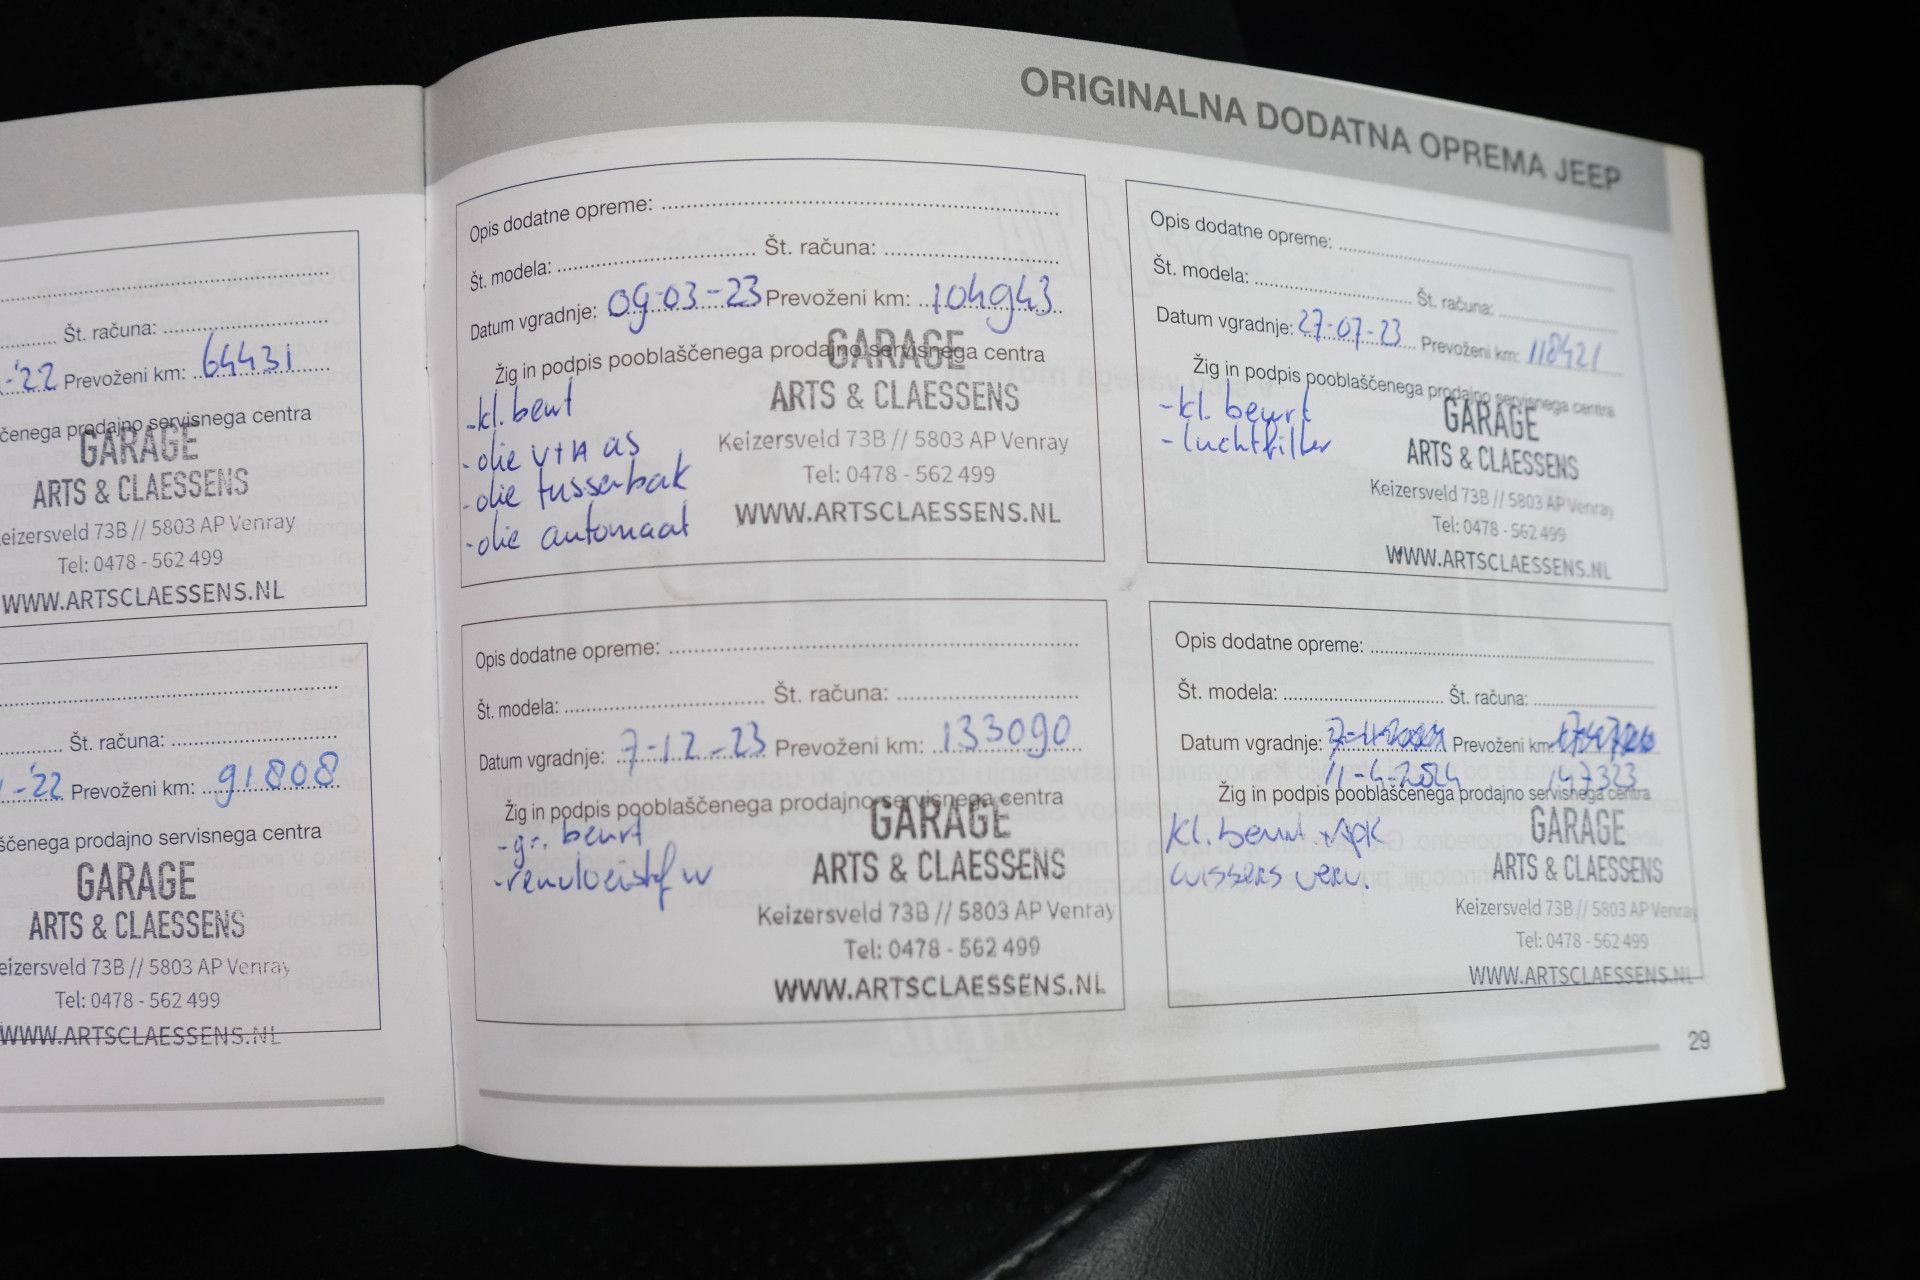 Št. računa:
-'22 Prevoženi km: 64431
čenega prodajno servisnega centra
GARAGE
ARTS & CLAESSENS
eizersveld 73B // 5803 AP Venray
Tel: 0478 - 562 499
WWW.ARTSCLAESSENS.NL
Št. računa:
-'22 Prevoženi km: 91808
ščenega prodajno servisnega centra
GARAGE
ARTS & CLAESSENS
eizersveld 73B // 5803 AP Venray
Tel: 0478 - 562 499
WWW.ARTSCLAESSENS.NL
ORIGINALNA DODATNA OPREMA JEEP
Opis dodatne opreme:
Št. modela: Št. računa:
Datum vgradnje: 09-03-23 Prevoženi km: 104943
Žig in podpis pooblaščenega prodajno servisnega centra
GARAGE
ARTS & CLAESSENS
Keizersveld 73B // 5803 AP Venray
Tel: 0478 - 562 499
WWW.ARTSCLAESSENS.NL
-kl. beurt
-olie v+A as
-olie tussenbak
-olie automaat
Opis dodatne opreme:
Št. modela: Št. računa:
Datum vgradnje: 27-07-23 Prevoženi km: 118421
Žig in podpis pooblaščenega prodajno servisnega centra
-kl. beurt
-luchtfilter
GARAGE
ARTS & CLAESSENS
Keizersveld 73B // 5803 AP Venray
Tel: 0478 - 562 499
WWW.ARTSCLAESSENS.NL
Opis dodatne opreme:
Št. modela: Št. računa:
Datum vgradnje: 7-12-23 Prevoženi km: 133090
Žig in podpis pooblaščenega prodajno servisnega centra
-gr. beurt
-remvloeistof vv
GARAGE
ARTS & CLAESSENS
Keizersveld 73B // 5803 AP Venray
Tel: 0478 - 562 499
WWW.ARTSCLAESSENS.NL
Opis dodatne opreme:
Št. modela: Št. računa:
Datum vgradnje: Prevoženi km:
11-4-2024 147323
Žig in podpis pooblaščenega prodajno servisnega centra
kl. beurt + APK
wissers verv.
GARAGE
ARTS & CLAESSENS
Keizersveld 73B // 5803 AP Venray
Tel: 0478 - 562 499
WWW.ARTSCLAESSENS.NL
29